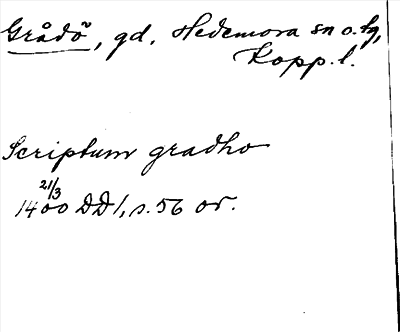 Grådö, gd. Hedemora sn o. tg,
Kopp. l.
Scriptum gradho
21/3
1400 DD 1, s. 56 or.